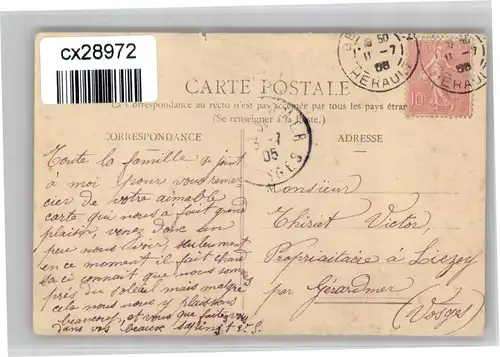 cx28972
18 50
11 -7
05
HERAULT
11 -7
05
HERAULT
10
CARTE POSTALE
La Correspondance au recto n'est pas acceptée par tous les pays étran
(Se renseigner à la Poste.)
CORRESPONDANCE
ADRESSE
-7
05
Toute la famille se joint
à moi pour vous remer
cier de votre aimable
carte qui nous a fait grand
plaisir, venez donc un
peu nous livrer, seulement
en ce moment il fait chaud
sa ci connait que nous somm
près du soleil mais malgré
cela nous nous y plaisons
beaucoup, et vous que faites vous
dans vos beaux sapins
Monsieur
Thiriet Victor,
Propriaitaire à Liezey
par Gérardmer
(Vosges)